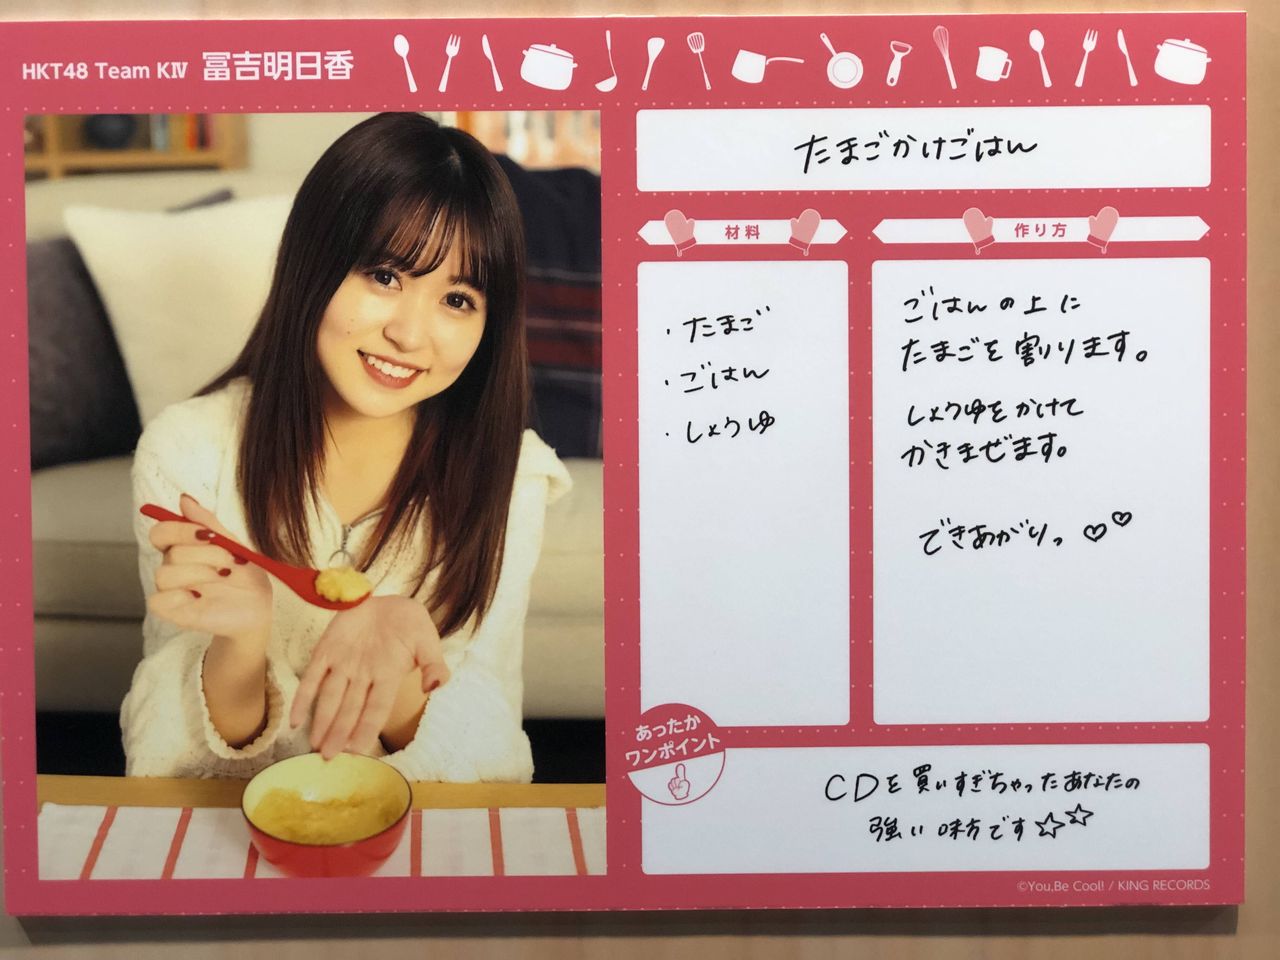 HKT48 Team KⅣ 冨吉明日香
たまごかけごはん
材料
・たまご
・ごはん
・しょうゆ
作り方
ごはんの上に
たまごを割ります。
しょうゆをかけて
かきまぜます。
できあがりっ♡♡
あったか
ワンポイント
CDを買いすぎちゃったあなたの
強い味方です☆☆
©You, Be Cool! / KING RECORDS